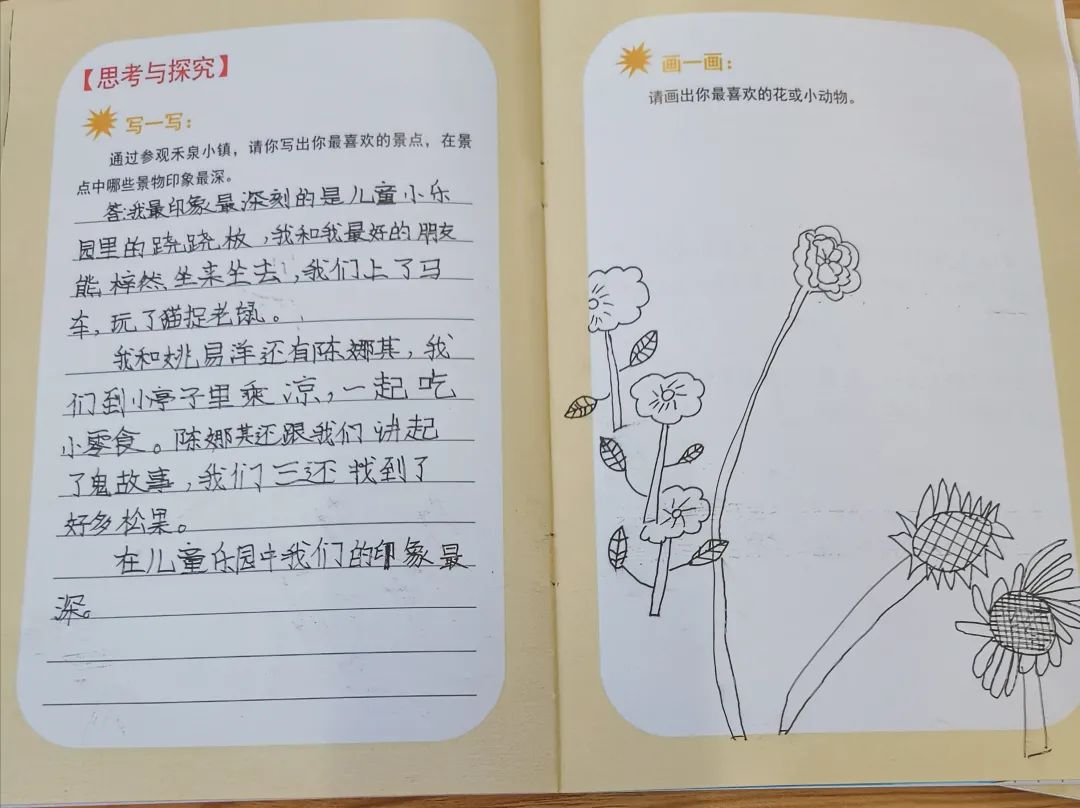 【思考与探究】
写一写：
通过参观禾泉小镇，请你写出你最喜欢的景点，在景
点中哪些景物印象最深。
答:我最印象最深刻的是儿童小乐
园里的跷跷板，我和我最好的朋友
能梓然坐来坐去，我们上了马
车，玩了猫捉老鼠。
我和姚易洋还有陈娜其，我
们到小亭子里乘凉，一起吃
小零食。陈娜其还跟我们讲起
了鬼故事，我们三还找到了
好多松果。
在儿童乐园中我们的印象最
深。
画一画：
请画出你最喜欢的花或小动物。